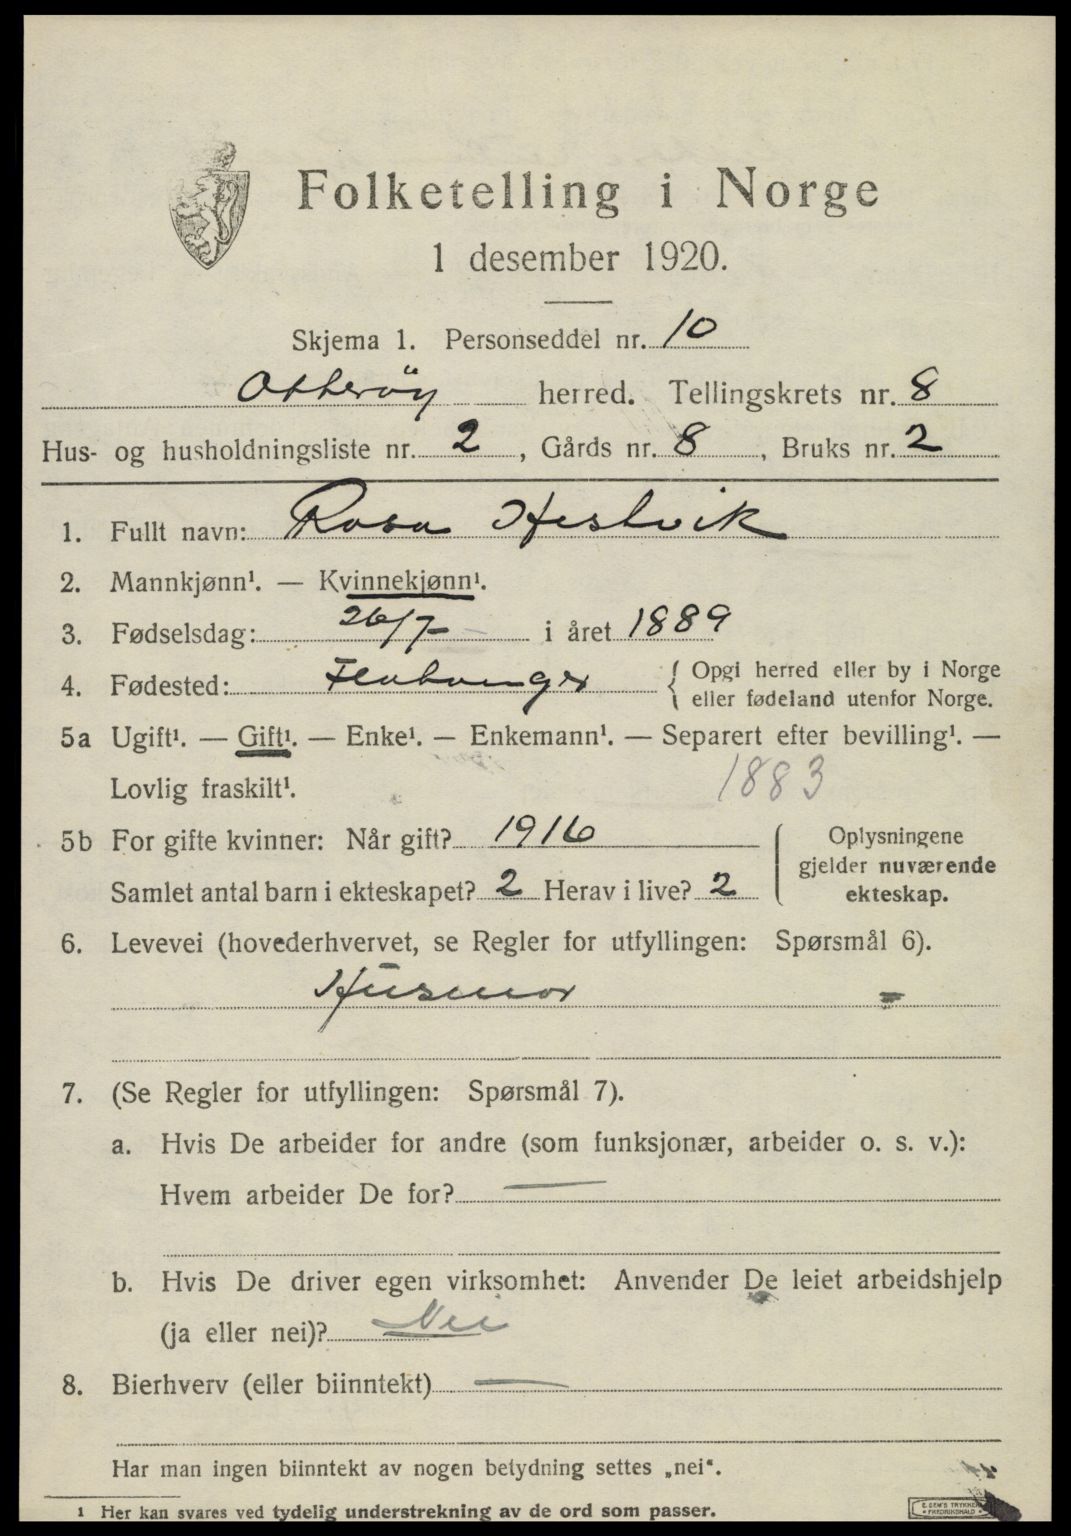 Folketelling i Norge
1 desember 1920.
Skjema 1. Personseddel nr. 10
Otterøy herred. Tellingskrets nr. 8
Hus- og husholdningsliste nr. 2, Gårds nr. 8, Bruks nr. 2
1. Fullt navn: Rosa Hestvik
2. Mannkjønn¹. — Kvinnekjønn¹.
3. Fødselsdag: 26/7 - i året 1889
4. Fødested: Flatanger { Opgi herred eller by i Norge
eller fødeland utenfor Norge.
5a Ugift¹. — Gift¹. — Enke¹. — Enkemann¹. — Separert efter bevilling¹. —
Lovlig fraskilt¹. 1883
5b For gifte kvinner: Når gift? 1916
Samlet antal barn i ekteskapet? 2 Herav i live? 2
Oplysningene
gjelder nuværende
ekteskap.
6. Levevei (hovederhvervet, se Regler for utfyllingen: Spørsmål 6).
Husmor =
7. (Se Regler for utfyllingen: Spørsmål 7).
a. Hvis De arbeider for andre (som funksjonær, arbeider o. s. v.):
Hvem arbeider De for? —
b. Hvis De driver egen virksomhet: Anvender De leiet arbeidshjelp
(ja eller nei)? Nei
8. Bierhverv (eller biinntekt) —
Har man ingen biinntekt av nogen betydning settes „nei“.
¹ Her kan svares ved tydelig understrekning av de ord som passer.
E. SEM'S TRYKKERI
FREDRIKSHALD